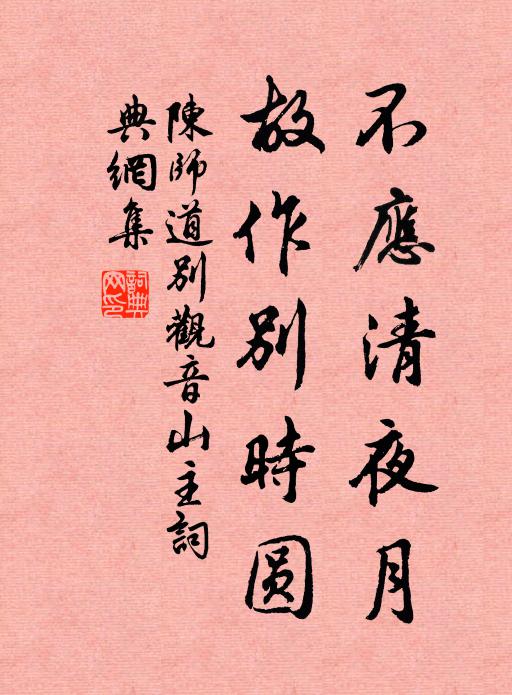 不應清夜月
故作别時圆
陳師道别觀音山主詞
典網集
詞典網印